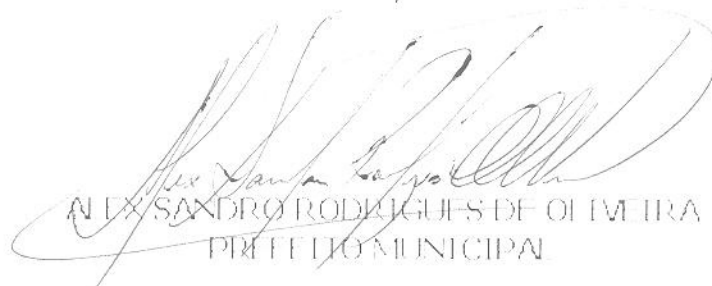 ALEX SANDRO RODRIGUES DE OLIVEIRA
PREFEITO MUNICIPAL